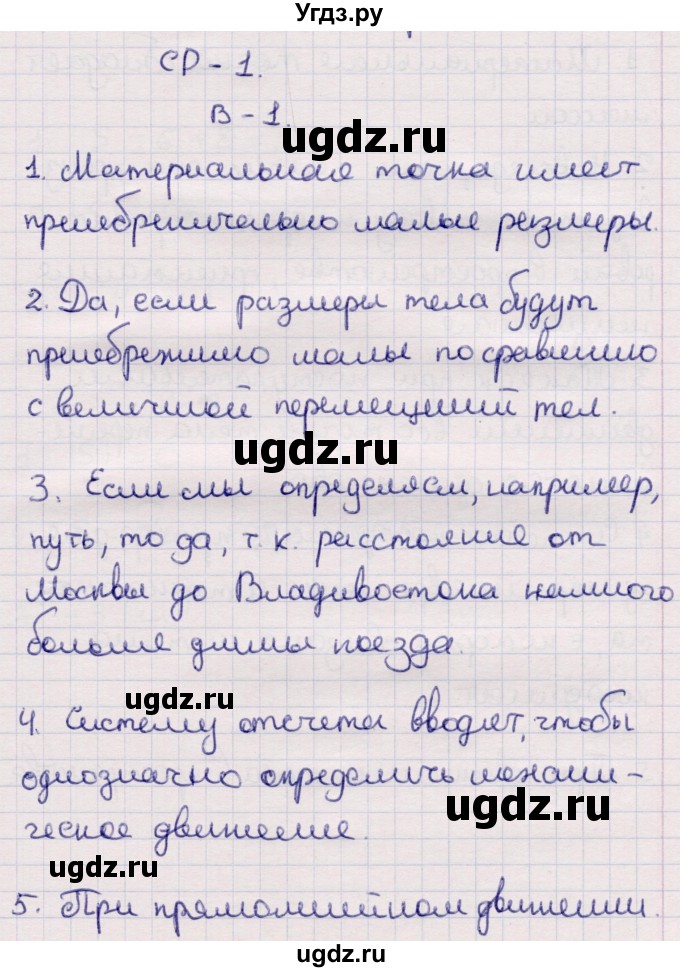 Угдз.ру
СР - 1.
В - 1.
ugdz.ru
1. Материальная точка имеет
пренебрежительно малые размеры.
2. Да, если размеры тела будут
пренебрежимо малы по сравнению
с величиной перемещений тел.
ugdz.ru
3. Если мы определяем, например,
путь, то да, т.к. расстояние от
Москвы до Владивостока намного
больше длины поезда.
ugdz.ru
4. Систему отсчета вводят, чтобы
однозначно определить механи-
ugdz.ru
ческое движение.
ugdz.ru
5. При прямолинейном движении.
ugdz.ru